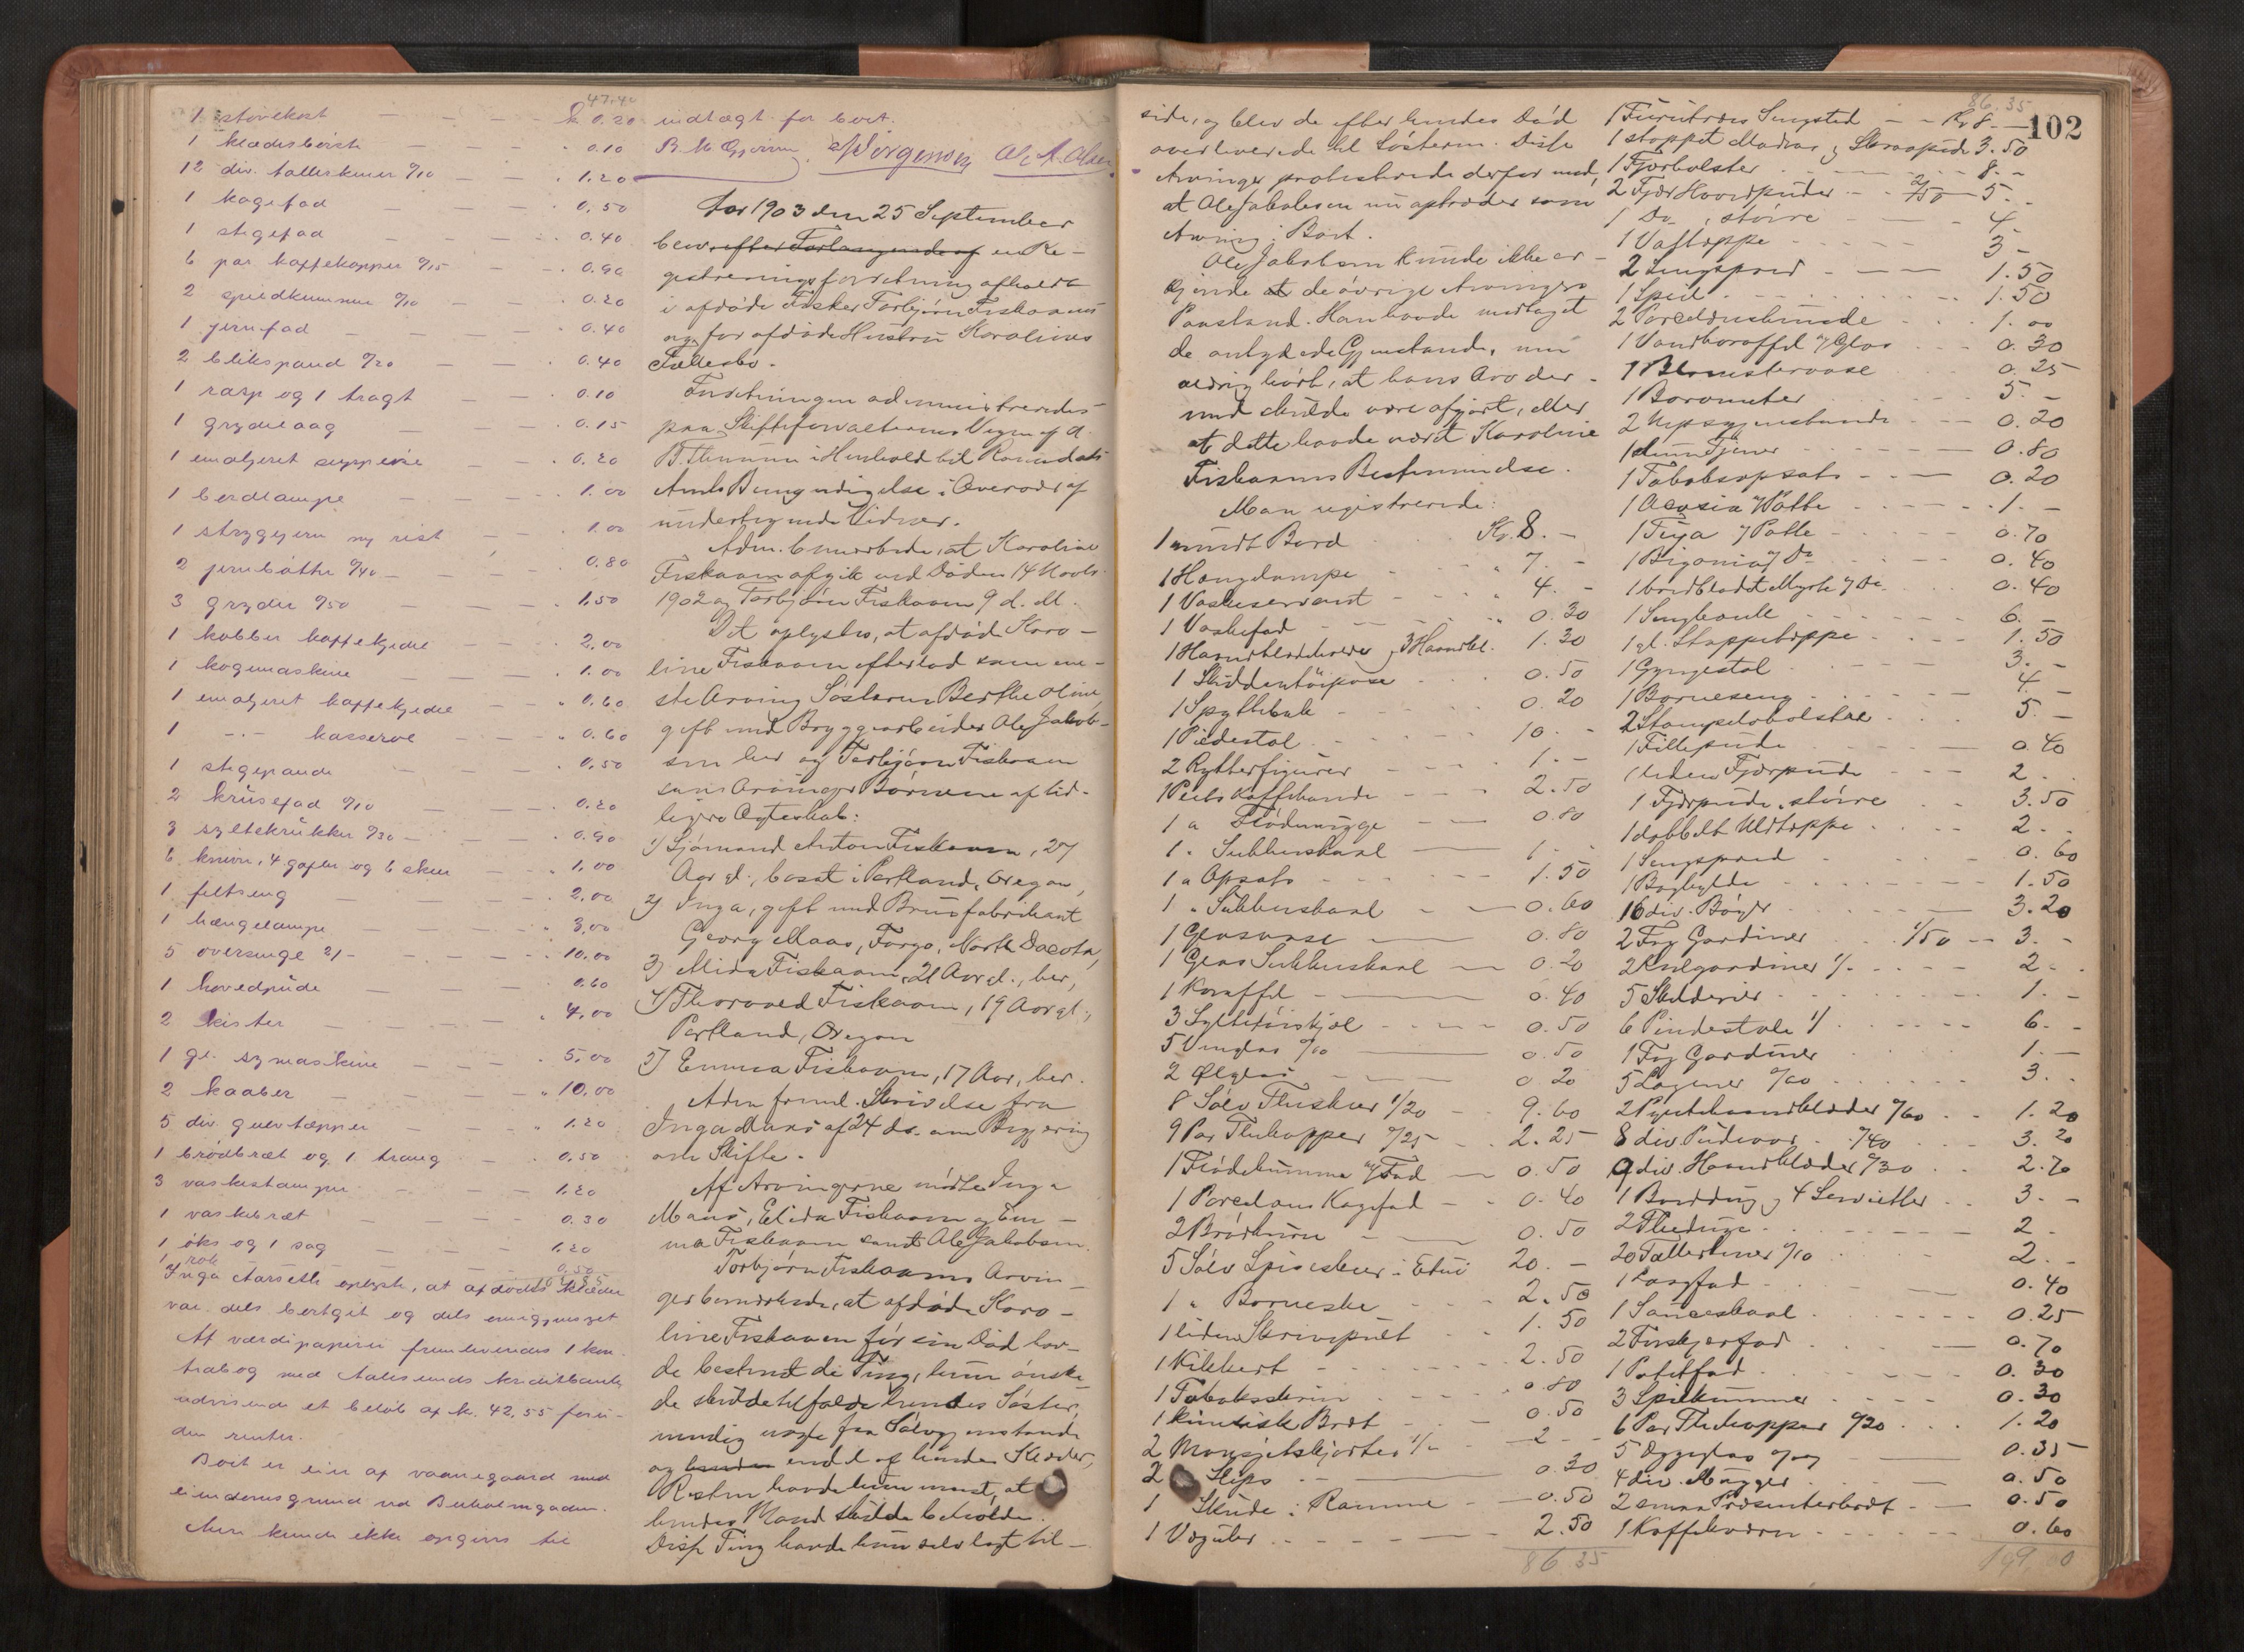 47.40
1 støvekost — — — k 0.20
1 klædesbörste — — — " 0.10
12 div. tallerkener %10 — — " 1.20
1 kagefad — — — " 0.50
1 stegefad — — — " 0.40
6 par kaffekopper %15 — — " 0.90
2 spiedkumme %10 — — " 0.20
1 jernfad — — — " 0.40
2 blikspand %20 — — " 0.40
1 rasp og 1 tragt — — " 0.10
1 grydelaag — — — " 0.15
1 emaljeret suppeøse — — " 0.20
1 bordlampe — — — " 1.00
1 strygejern m/ rist — — " 1.00
2 jernbötte %40 — — — " 0.80
3 gryder %50 — — — " 1.50
1 kobber kaffekjedel — — " 2.00
1 kogemaskine — — — " 1.00
1 emaljeret kaffekjedel — — " 0.60
1 -.- kasserol — — " 0.60
1 stegepande — — — " 0.50
2 krüsefad %10 — — — " 0.20
3 syltekrükker %30 — — — " 0.90
6 knive, 4 gafler og 6 skeer — " 1.00
1 feltseng — — — " 2.00
1 hængelampe — — — " 3.00
5 oversenge 2/- — — — " 10.00
1 hovedpüde — — — " 0.60
2 kister — — — " 4.00
1 gl. symaskine — — — " 5.00
2 kaaber — — — " 10.00
5 div. gulvtæpper — — — " 1.20
1 brödbræt og 1 traug — — " 0.50
3 vaskestamper — — — " 1.20
1 vaskebræt — — — " 0.30
1 öks og 1 sag — — — 1.20
1 rok 0.50
Inga Aarseth oplyste, at afdødes klæder
var dels bortgit og dels
Af værdipapirer fremlevendes 1 kon-
trabog med Aalesunds kreditbank
udvisende et beløb af k. 42,55 foru-
den renter.
Boet er eier af vaaningaard med
eiendomsgrund ved Buholmgaden.
Mere kunde ikke opgives til
indtægt for boet.
Jörgensen Ole A. Olsen
Aar 1903 den 25 September
blev efter Forlangende af en Re-
gistreringsforretning afholdt
i afdöde Fisker Torbjörn Fiskaaens
og for afdöde Hustru Karolines
Fællesbo.
Forretningen administreredes
paa Skifteforvalterens Vegne af A.
B. Thunem i Henhold til Romsdals
Amts Bemyndigelse i Overvær af
undertegnede Vidner.
Adm. bemærkede, at Karoline
Fiskaaen afgik ved Döden 14 Novbr
1902 og Torbjörn Fiskaaen 9 d. M.
Det oplystes, at afdöde Karo-
line Fiskaaen efterlod som ene-
ste Arving Sösteren Berthe Oline
gift med Bryggearbeider Ole Jakob-
sen her og Torbjörn Fiskaaen
som Arvinger Börnene af tid-
ligere Ægteskab:
1) Sjömand Anton Fiskaaen, 27
Aar gl., bosat i Portland, Oregon,
2) Inga, gift med Brusfabrikant
Georg Maas, Fargo, North Dacota,
3) Elida Fiskaaen, 21 Aar gl., her,
4) Thorvald Fiskaaen, 19 Aar gl.,
Portland, Oregon
5) Emma Fiskaaen, 17 Aar, her.
Adm freml. Skrivelse fra
Inga Maas af 24 ds. om Begjæring
om Skifte.
Af Arvingerne mödte Inga
Maas, Elida Fiskaaen og Em-
ma Fiskaaen samt Ole Jakobsen.
Torbjörn Fiskaaens Arvin-
ger bemærkede, at afdöde Karo-
line Fiskaaen för sin Död hav-
de bestemt de Ting, hun önske-
de skulde tilfalde hendes Söster,
nemlig nogle faa Sölvgjenstande
og hendes endel af hendes Klæder,
Resten havde hun ment, at
hendes Mand skulde beholde.
Disse Ting havde hun selv lagt til-
86.35
102
side, og blev de efter hendes Död
overleverede til Sösteren. Disse
Arvinger protesterede derfor mod,
at Ole Jakobsen nu optræder som
Arving i Boet.
Ole Jakobsen kunde ikke er-
kjende at de övrige Arvingers
Paastand. Han havde modtaget
de antydede Gjenstande, men
aldrig hört, at hans Arv der-
med skulde være afgjort, eller
at dette havde været Karoline
Fiskaaens Bestemmelse.
Man registrerede:
1 rundt Bord Kr. 8.-
1 Hængelampe " 7.-
1 Vaskeservant " 4.-
1 Vaskefad " 0.30
1 Haandklædeholder & 3 Haandkl. 1.30
1 Skiddentöipose 0.50
1 Spyttebak 0.20
1 Piedestal 10.-
2 Rytterfigurer 1.-
1 Plets Kaffekande 2.50
1 " Flödemugge 0.80
1 " Sukkerskaal 1.-
1 " Opsats 1.50
1 " Sukkerskaal 0.60
1 Glasvase 0.80
1 Glas Sukkerskaal 0.20
1 Karaffel 0.40
3 Syltetöiskjæl 0.50
5 Vinglas %10 0.50
2 Ölglas 0.20
8 Sölv Theskeer 1/20 9.60
9 Par Thekopper %25 2.25
1 Flödekumme m/ Fad 0.50
1 Porcelæns Kagefad 0.40
2 Brödkurve 0.50
5 Sölv Spiseskeer i Etui 20.-
1 " Barneske 2.50
1 liden Skrivepult 1.50
1 Kikkert 2.50
1 Tobaksskrin 0.80
1 kinesisk Bræt 0.50
2 Mansjetskjorter 1/- 2-
2 Slips 0.30
1 Skude i Ramme 0.50
1 Vægübr 2.50
86 35
1 Furutræs Sengsted Kr 8.-
1 stoppet Madras & Skraapude 3.50
1 Fjærbolster 8.-
2 Fjær Hovedpüder 2/50 5.-
1 Do, större 4.-
1 Vattæppe 3-
2 Sengspred 1.50
1 Speil 1.50
2 Porcelænshunde 1.00
1 Vandkaraffel m/ Glas 0.30
1 Blomstervase 0.25
1 Barometer 5.-
2 Nipsgjenstande 0.20
1 0.80
1 Tobaksopsats 0.20
1 Aloesia m/ Pötte 1.-
1 Tuja m/ Potte 0.70
1 Bigonia m/ Do 0.40
1 bredbladet Myrte m/ Do 0.40
1 Senghaule 6.-
1 gl. Stoppetæppe 1.50
1 Gyngestol 3.-
1 Barneseng 4.-
2 Stoppetsbolstre 5.-
1 Fillepude 0.40
1 liden Fjærpude 2.-
1 Fjærpude, större 3.50
1 dobbelt Uldtæppe 2.-
1 Sengspred 0.60
1 Boghylde 1.50
16 div. Böger 3.20
2 Fag Gardiner 1/50 3.-
2 Rulgardiner 1/- 2.-
5 Skilderier 1.-
6 Pindestole 1/ 6.-
1 Fag Gardiner 1.-
5 Lagener %60 3.-
2 Pyntehaandklæder %60 1.20
8 div Püdevar %40 3.20
9 div. Haandklæder %30 2.70
1 Borddug & 4 Servietter 3.-
2 Theduge 2-
20 Tallerkener %10 2.-
1 Langfad 0.40
1 Sauceskaal 0.25
2 0.70
1 Potetfad 0.30
3 Spilkummer 0.30
6 Par Thekopper %20 1.20
5 Æggeglas %07 0.35
4 div. Mugger 0.50
2 smaa Præsenterbræt 0.50
1 Kaffekværn 0.60